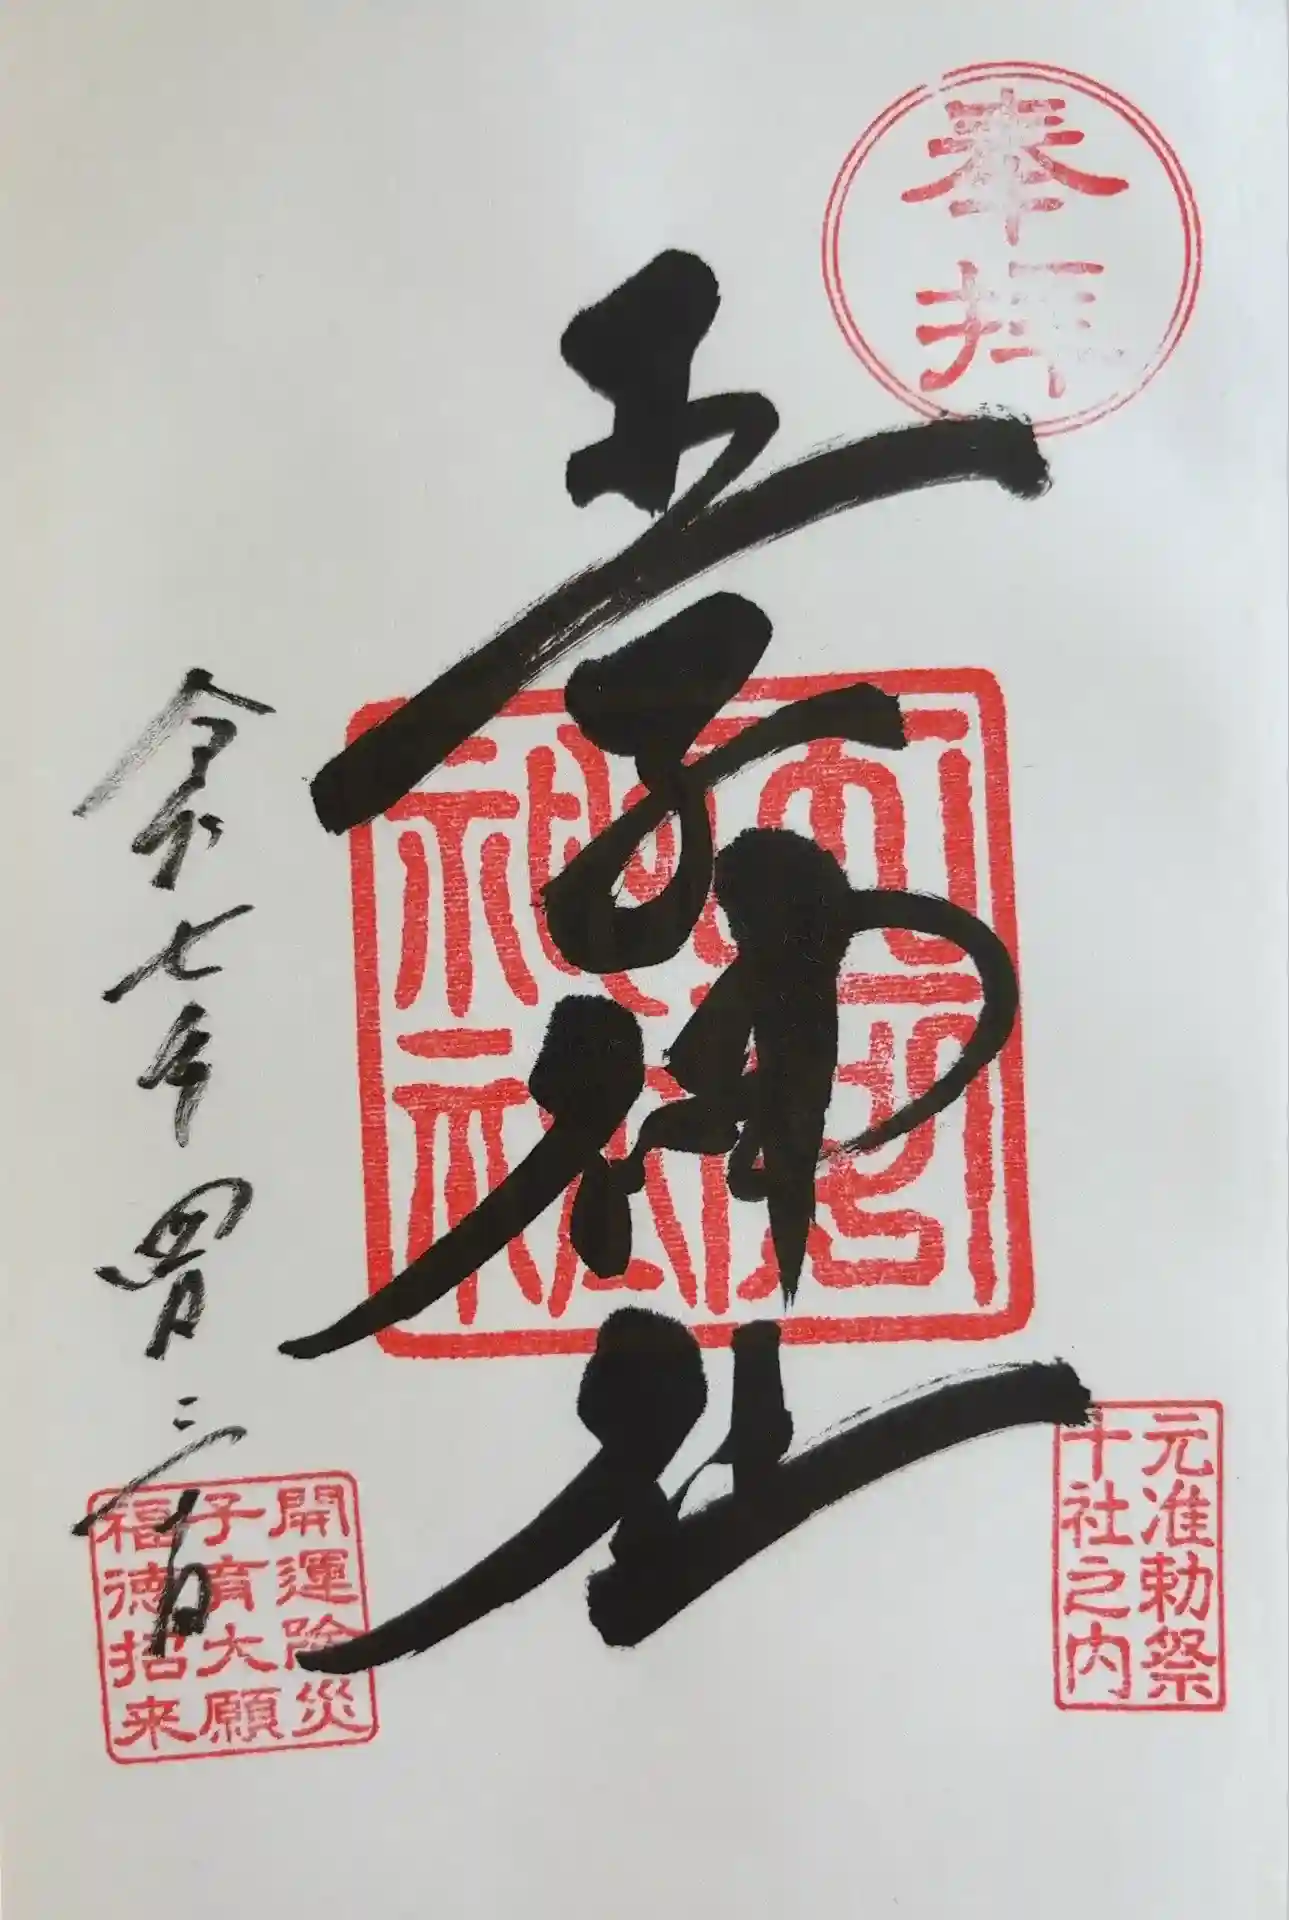 奉拝
王子神社
元准勅祭
十社之内
令和七年四月三日
開運除災
子育大願
福徳招来